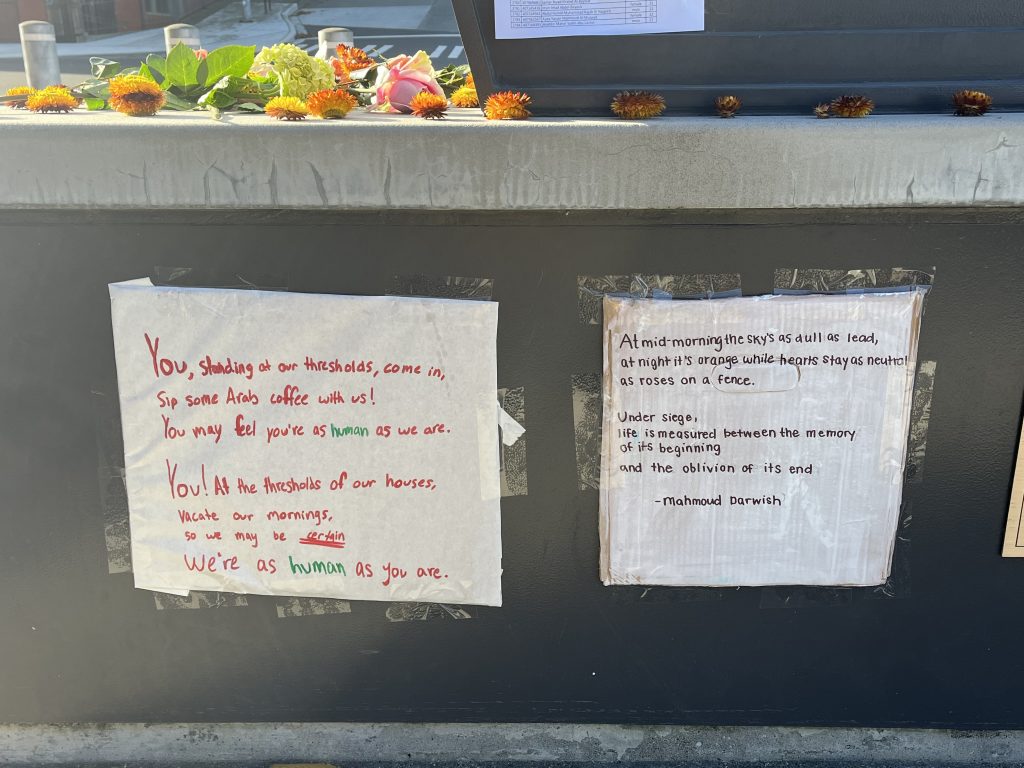 You, standing at our thresholds, come in,
Sip some Arab coffee with us!
You may feel you're as human as we are.
You! At the thresholds of our houses,
vacate our mornings,
so we may be certain
We're as human as you are.
At mid-morning the sky's as dull as lead,
at night it's orange while hearts stay as neutral
as roses on a fence.
Under siege,
life is measured between the memory
of its beginning
and the oblivion of its end
-Mahmoud Darwish